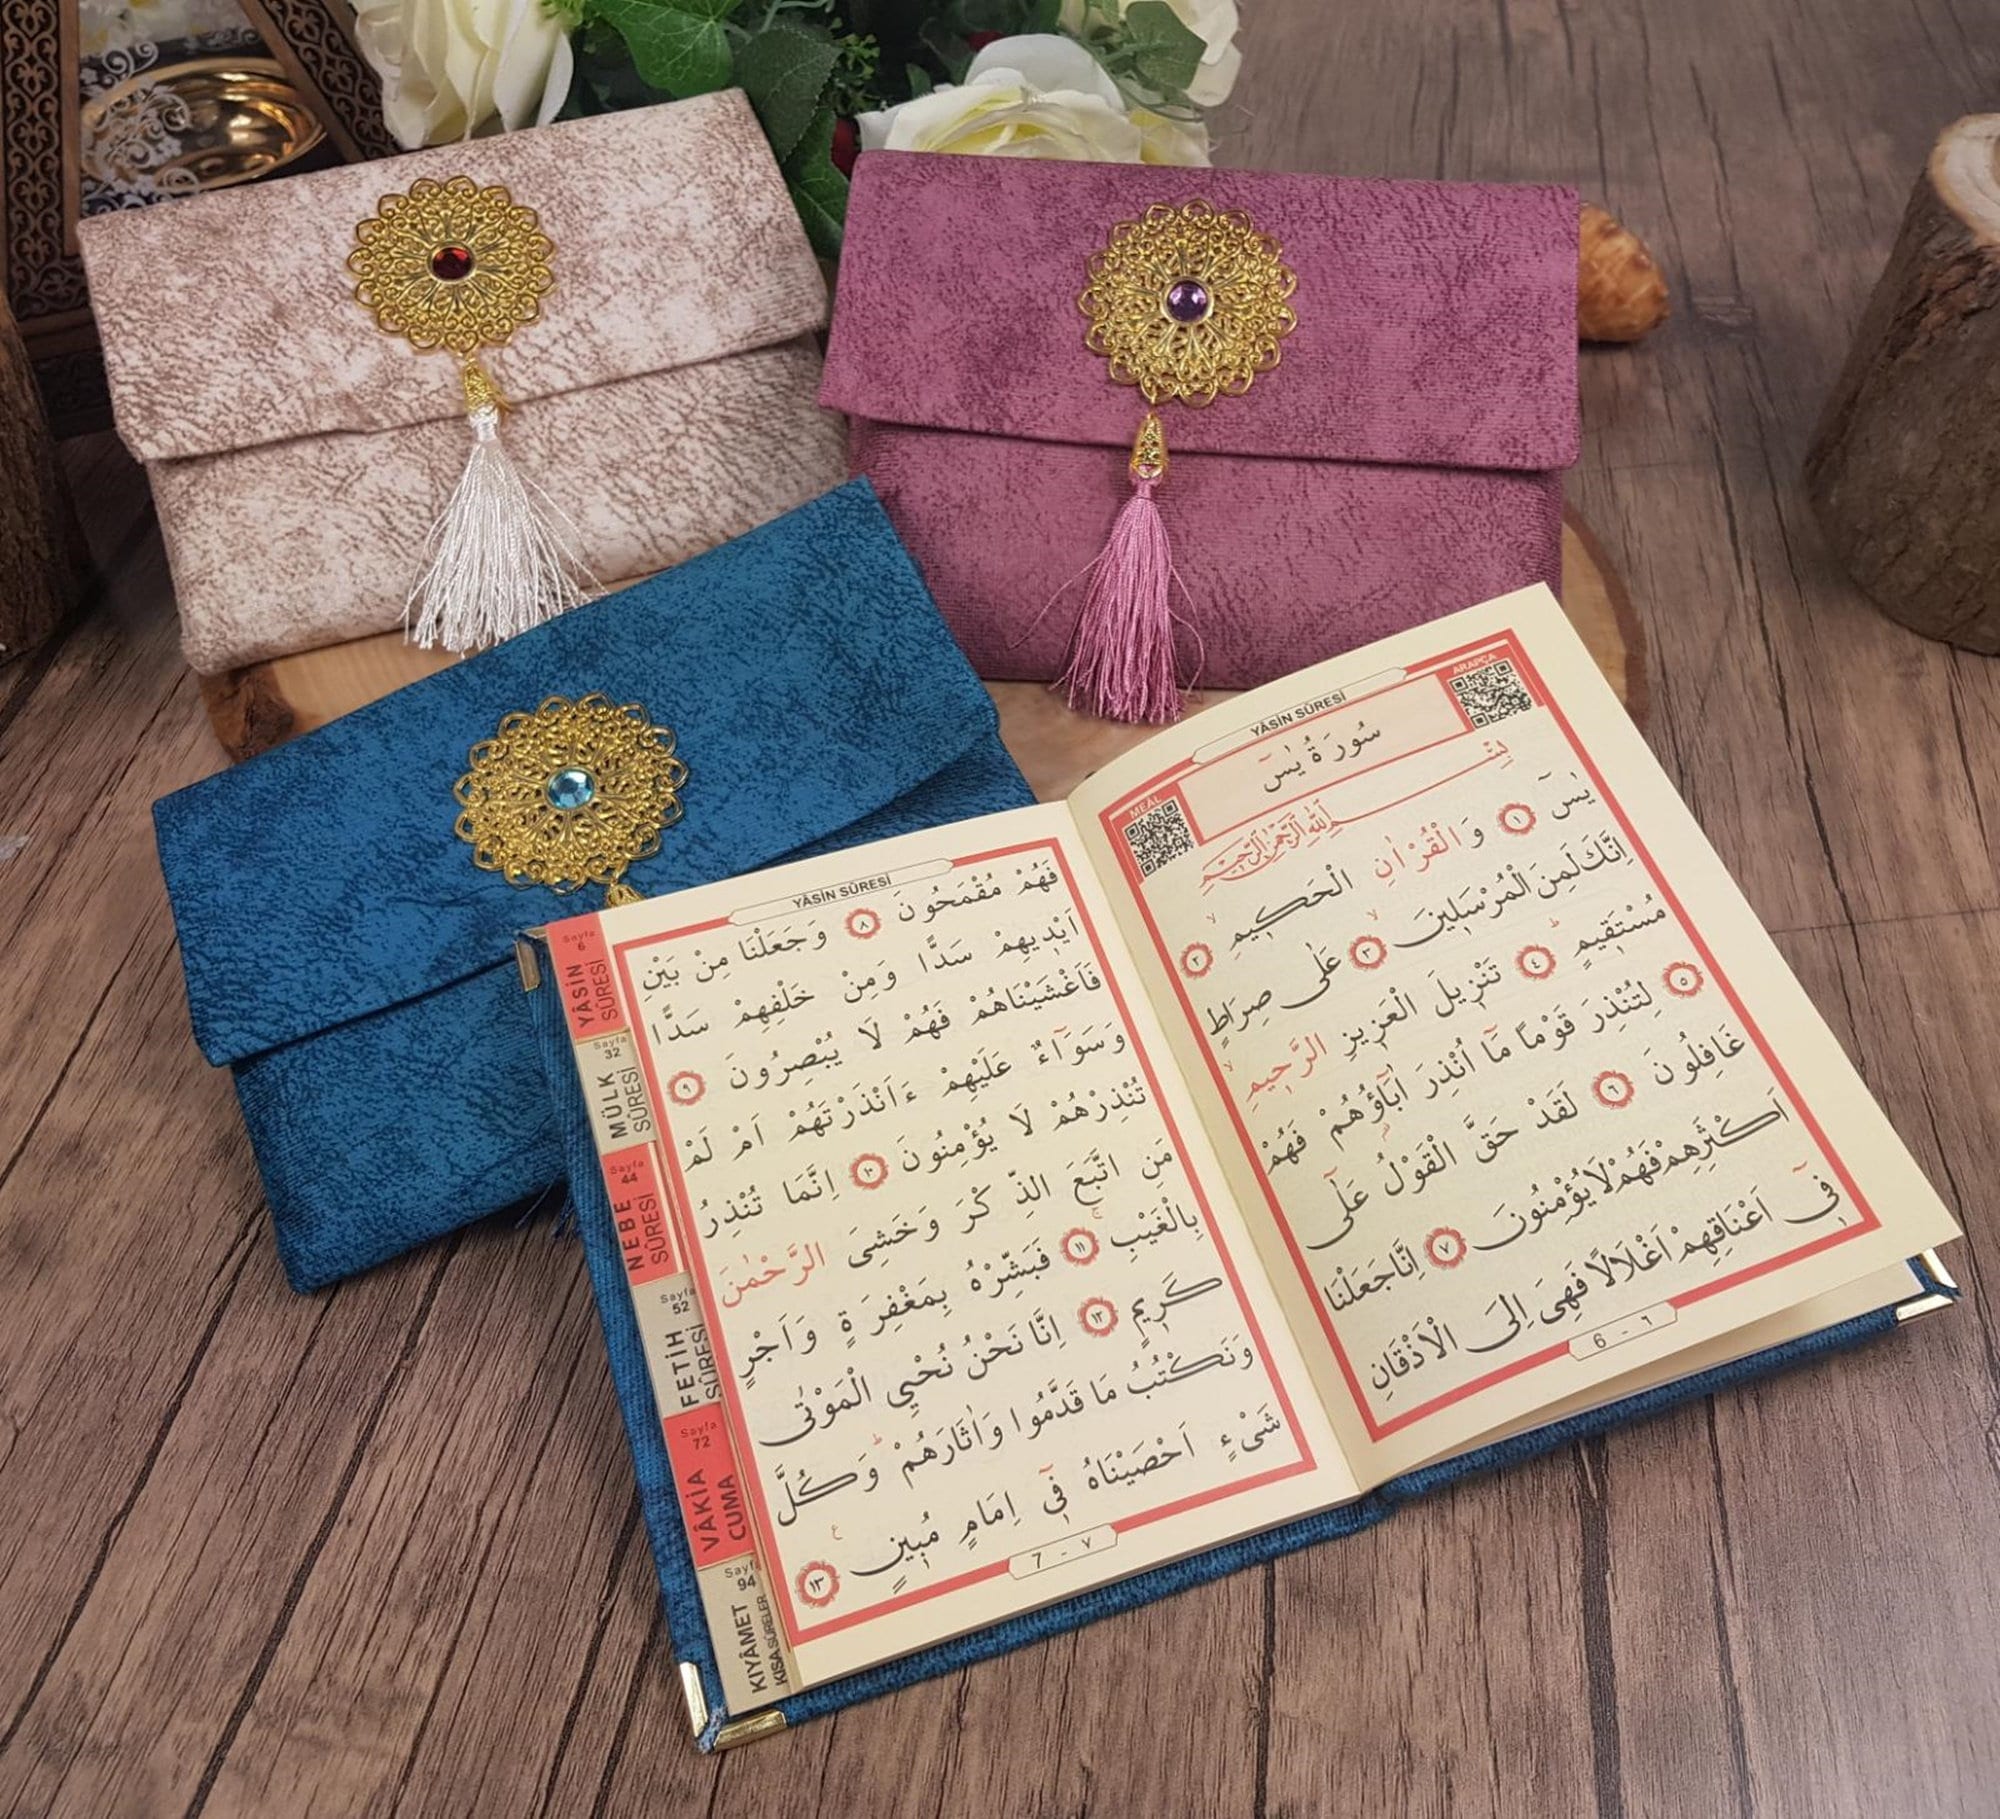 YÂSİN SÛRESİ
ARAPÇA
سُورَةُ يٰسٓ
MEÂL
بِسْــــــمِ اللّٰهِ الرَّحْمٰنِ الرَّحِيمِ
يٰسٓ ﴿١﴾ وَالْقُرْاٰنِ الْحَكِيمِ ﴿٢﴾
اِنَّكَ لَمِنَ الْمُرْسَلِينَ ﴿٣﴾ عَلٰى صِرَاطٍ
مُسْتَقِيمٍ ﴿٤﴾ تَنْزِيلَ الْعَزِيزِ الرَّحِيمِ
﴿٥﴾ لِتُنْذِرَ قَوْمًا مَٓا اُنْذِرَ اٰبَٓاؤُهُمْ فَهُمْ
غَافِلُونَ ﴿٦﴾ لَقَدْ حَقَّ الْقَوْلُ عَلٰٓى
اَكْثَرِهِمْ فَهُمْ لَا يُؤْمِنُونَ ﴿٧﴾ اِنَّا جَعَلْنَا
فٖٓي اَعْنَاقِهِمْ اَغْلَالًا فَهِيَ اِلَى الْاَذْقَانِ
6 - ٦
YÂSİN SÛRESİ
فَهُمْ مُقْمَحُونَ ﴿٨﴾ وَجَعَلْنَا مِنْ بَيْنِ
اَيْدِيهِمْ سَدًّا وَمِنْ خَلْفِهِمْ سَدًّا
فَاَغْشَيْنَاهُمْ فَهُمْ لَا يُبْصِرُونَ ﴿٩﴾
وَسَوَٓاءٌ عَلَيْهِمْ ءَاَنْذَرْتَهُمْ اَمْ لَمْ
تُنْذِرْهُمْ لَا يُؤْمِنُونَ ﴿١٠﴾ اِنَّمَا تُنْذِرُ
مَنِ اتَّبَعَ الذِّكْرَ وَخَشِيَ الرَّحْمٰنَ
بِالْغَيْبِ ﴿١١﴾ فَبَشِّرْهُ بِمَغْفِرَةٍ وَاَجْرٍ
كَرِيمٍ ﴿١٢﴾ اِنَّا نَحْنُ نُحْيِي الْمَوْتٰى
وَنَكْتُبُ مَا قَدَّمُوا وَاٰثَارَهُمْ وَكُلَّ
شَيْءٍ اَحْصَيْنَاهُ فٖٓي اِمَامٍ مُبِينٍ
﴿١٣﴾
7 - ٧
Sayfa 6
YÂSİN SÛRESİ
Sayfa 32
MÜLK SÛRESİ
Sayfa 44
NEBE SÛRESİ
Sayfa 52
FETİH SÛRESİ
Sayfa 72
VÂKİA CUMA
Sayfa 94
KIYÂMET KISA SÛRELER